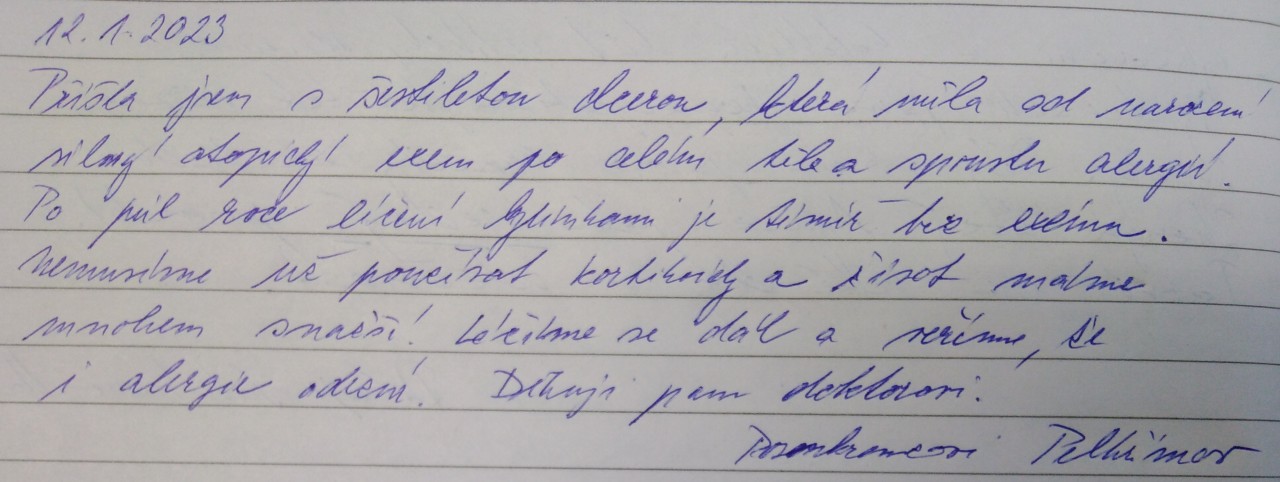 12.1.2023
Přišla jsem s šestiletou dcerou, která měla od narození
silný atopický exém po celém těle a spoustu alergií.
Po půl roce léčení bylinkami je téměř bez exému.
Nemusíme už používat kortikoidy a život máme
mnohem snazší. Léčíme se dál a věříme, že
i alergie odezní. Děkuji panu doktorovi.
Pelhřimov